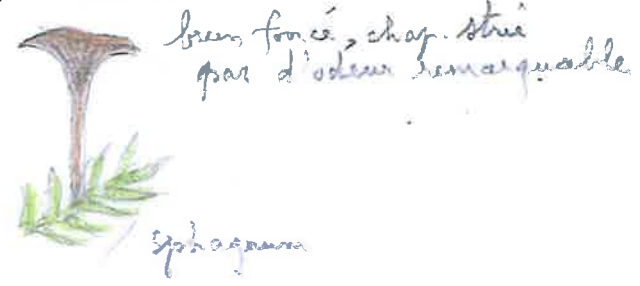 brun foncé, chap. strié
pas d'odeur remarquable
sphagnum